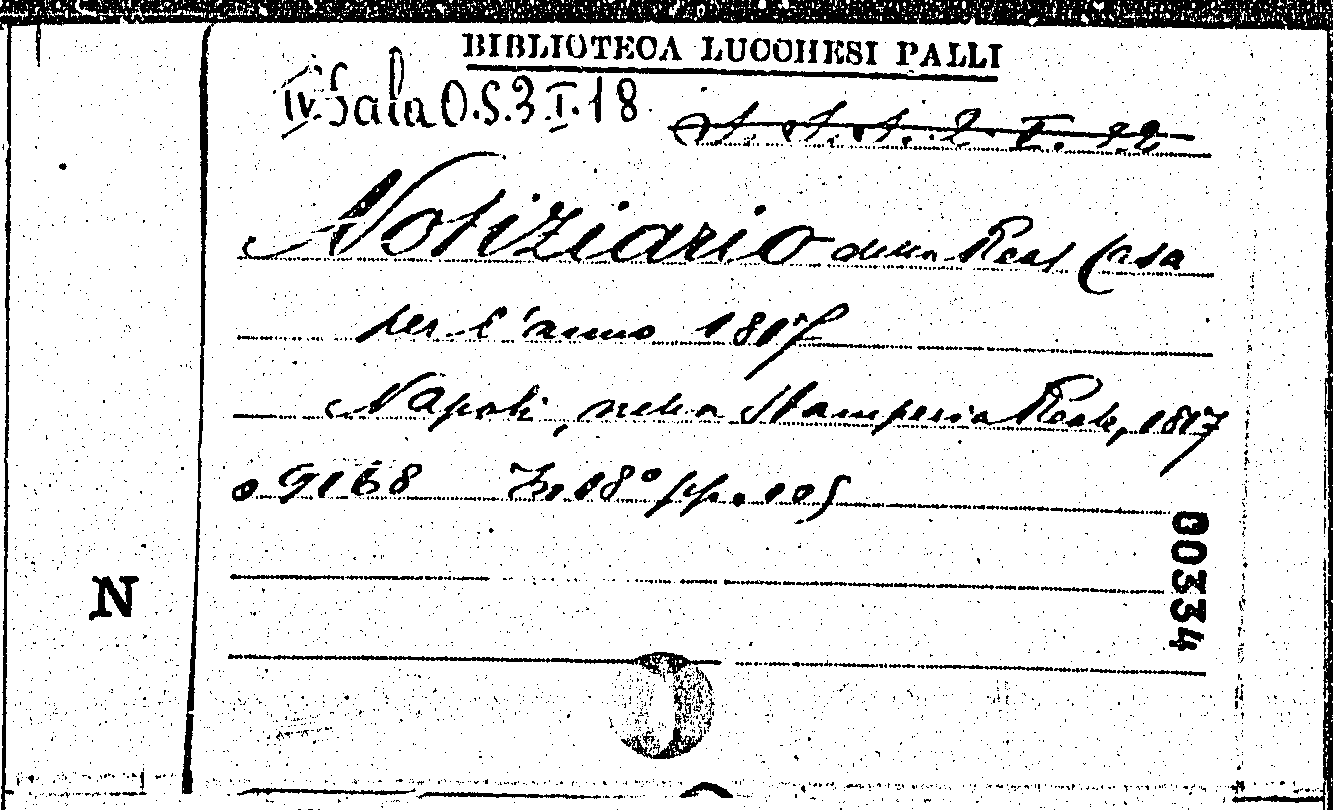 BIBLIOTECA LUCCHESI PALLI
IV Sala O.S.3 I.18
Notiziario della Real Casa
per l'anno 1817
Napoli, nella Stamperia Reale, 1817
9168 In 18° pp. 105
N
00334